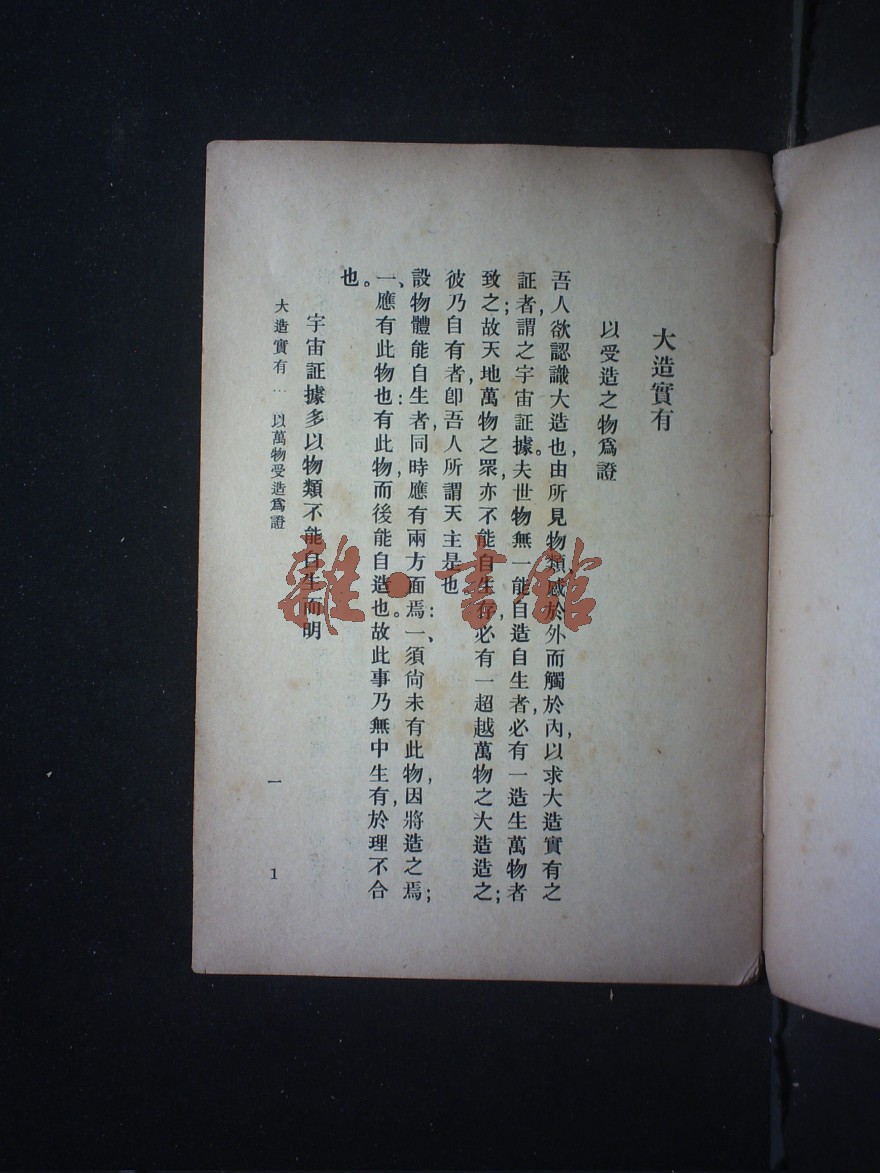 大造實有
以受造之物爲證
吾人欲認識大造也,由所見物類,感於外而觸於內,以求大造實有之
証者,謂之宇宙証據。夫世物無一能自造自生者,必有一造生萬物者
致之;故天地萬物之眾,亦不能自生,存必有一超越萬物之大造造之;
彼乃自有者,卽吾人所謂天主是也
設物體能自生者,同時應有兩方面焉:一、須尙未有此物,因將造之焉;
一、應有此物也:有此物,而後能自造也。故此事乃無中生有,於理不合
也。
宇宙証據多以物類不能自生而明
大造實有…以萬物受造爲證
一
1
雜·書館